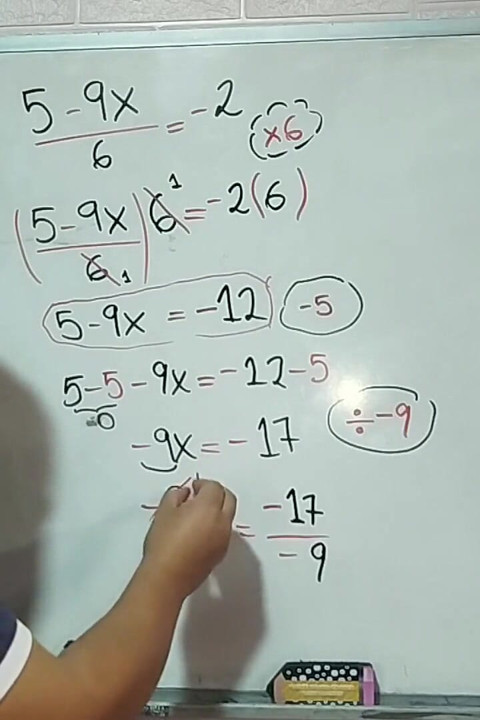 5-9x/6 = -2 ×6
(5-9x/6 1) 6 1 = -2(6)
5-9x = -12 -5
5-5-9x = -12-5
0
-9x = -17 ÷-9
= -17/-9